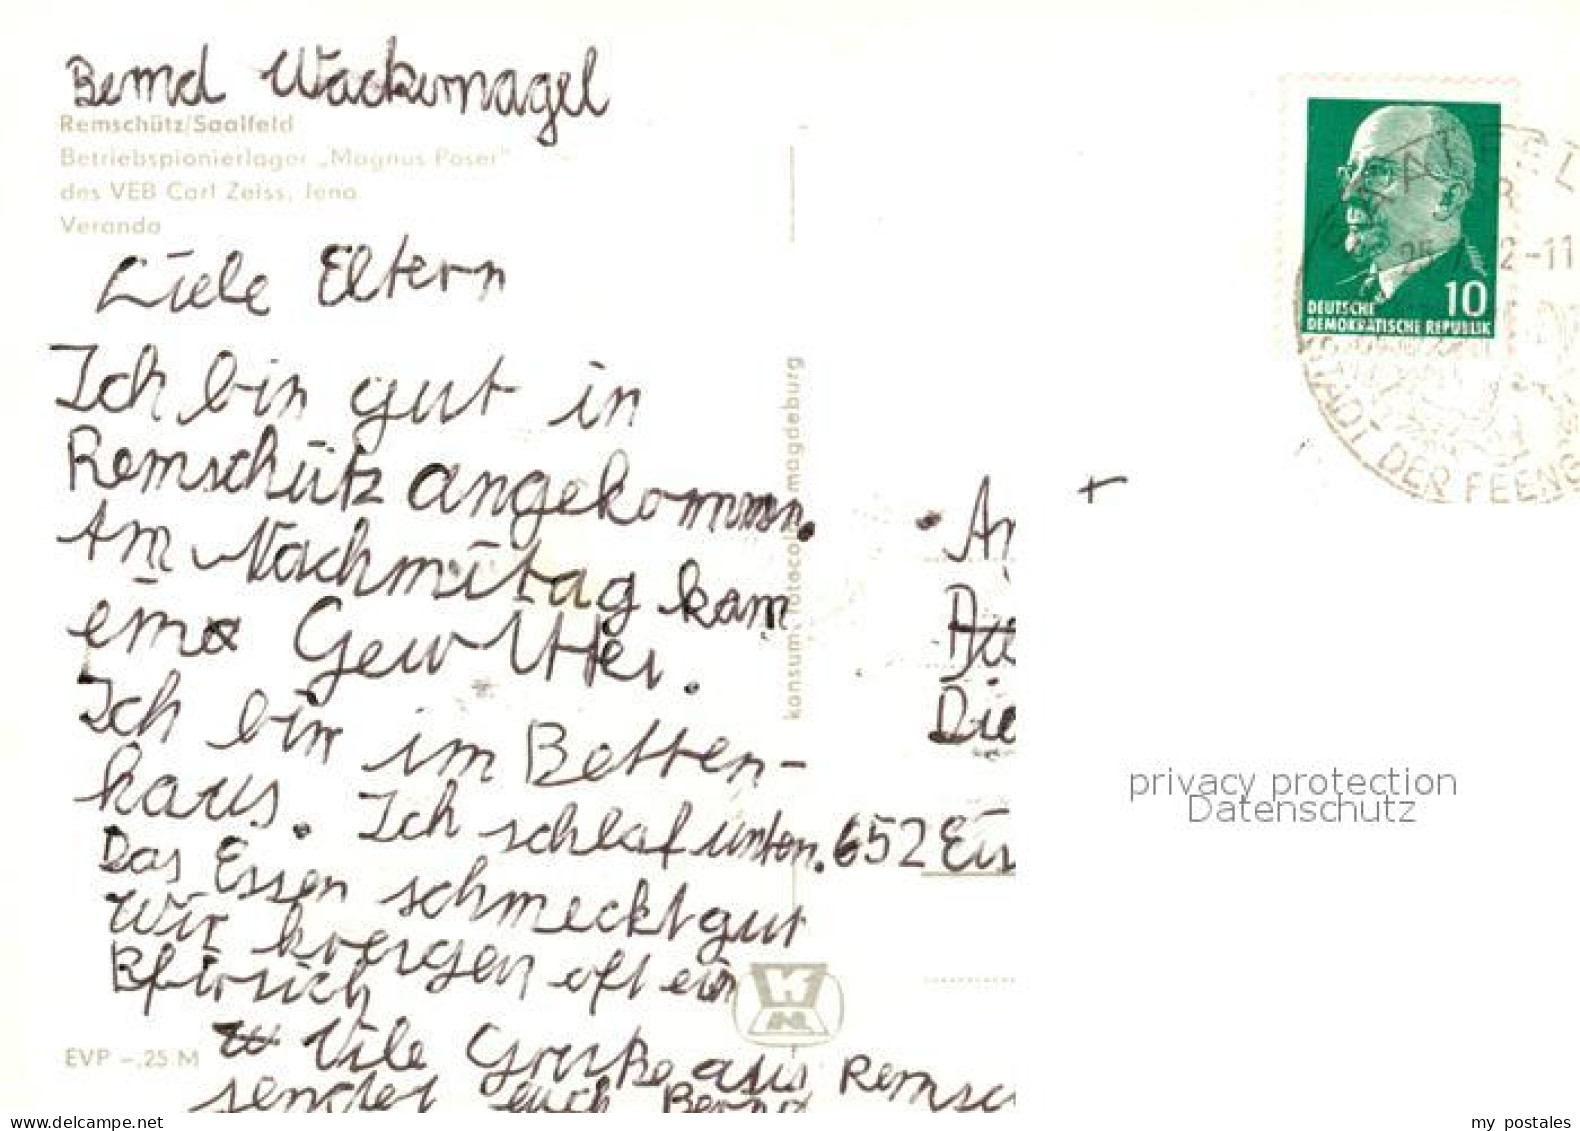 Bernd Wackernagel
Remschütz/Saalfeld
Betriebspionierlager „Magnus Poser"
des VEB Carl Zeiss, Jena
Veranda
Liebe Eltern
Ich bin gut in
Remschütz angekommen.
Am Nachmitag kam
ein Gewitter.
Ich bin im Betten-
haus. Ich schlaf unten.
Das Essen schmeckt gut
Wir kriegen oft ein
Pfirsich
Vile Grüße aus Remsc
sendet euch Bernd
EVP -,25 M
konsum-fotocolor magdeburg
DEUTSCHE
DEMOKRATISCHE REPUBLIK
10
SAALFEL
25
2-11
STADT DER FEENG
An
Die
Die
652 Eis
privacy protection
Datenschutz
delcampe.net
my_postales